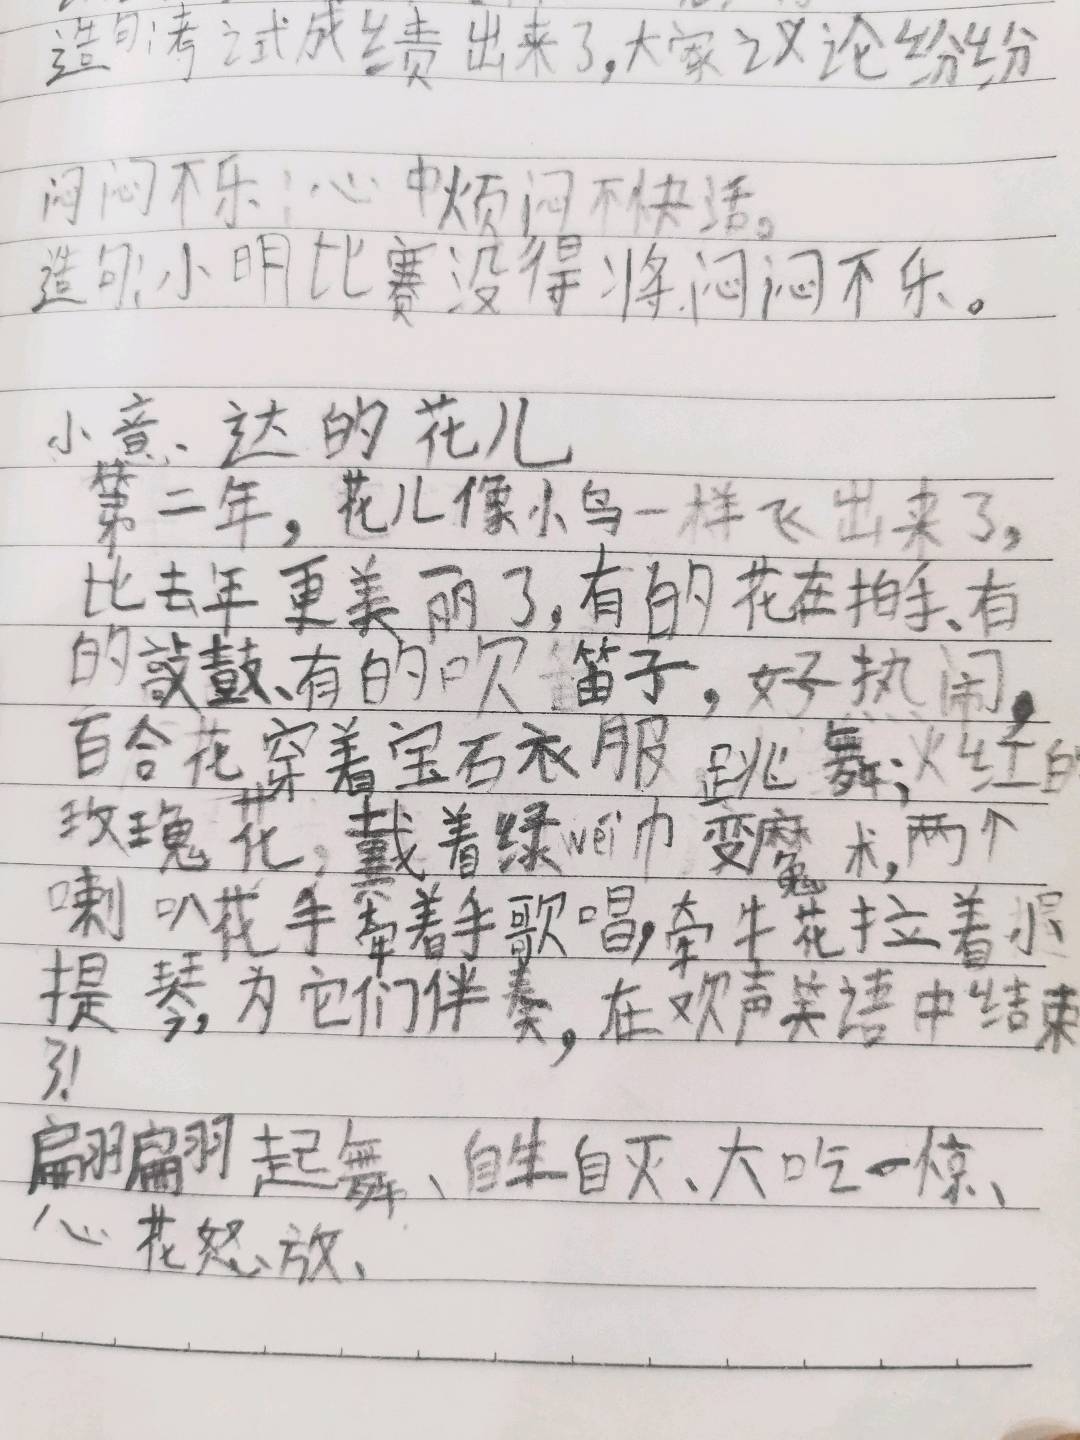 造句:考试成绩出来了,大家议论纷纷
闷闷不乐:心中烦闷不快活。
造句:小明比赛没得将,闷闷不乐。
小意达的花儿
第二年,花儿像小鸟一样飞出来了,
比去年更美丽了,有的花在拍手、有
的敲鼓、有的吹笛子,好热闹,
百合花穿着宝石衣服跳舞;火红的
玫瑰花,戴着绿wéi巾变魔术,两个
喇叭花手牵着手歌唱,牵牛花拉着小
提琴,为它们伴奏,在欢声笑语中结束
了!
翩翩起舞、自生自灭、大吃一惊、
心花怒放、